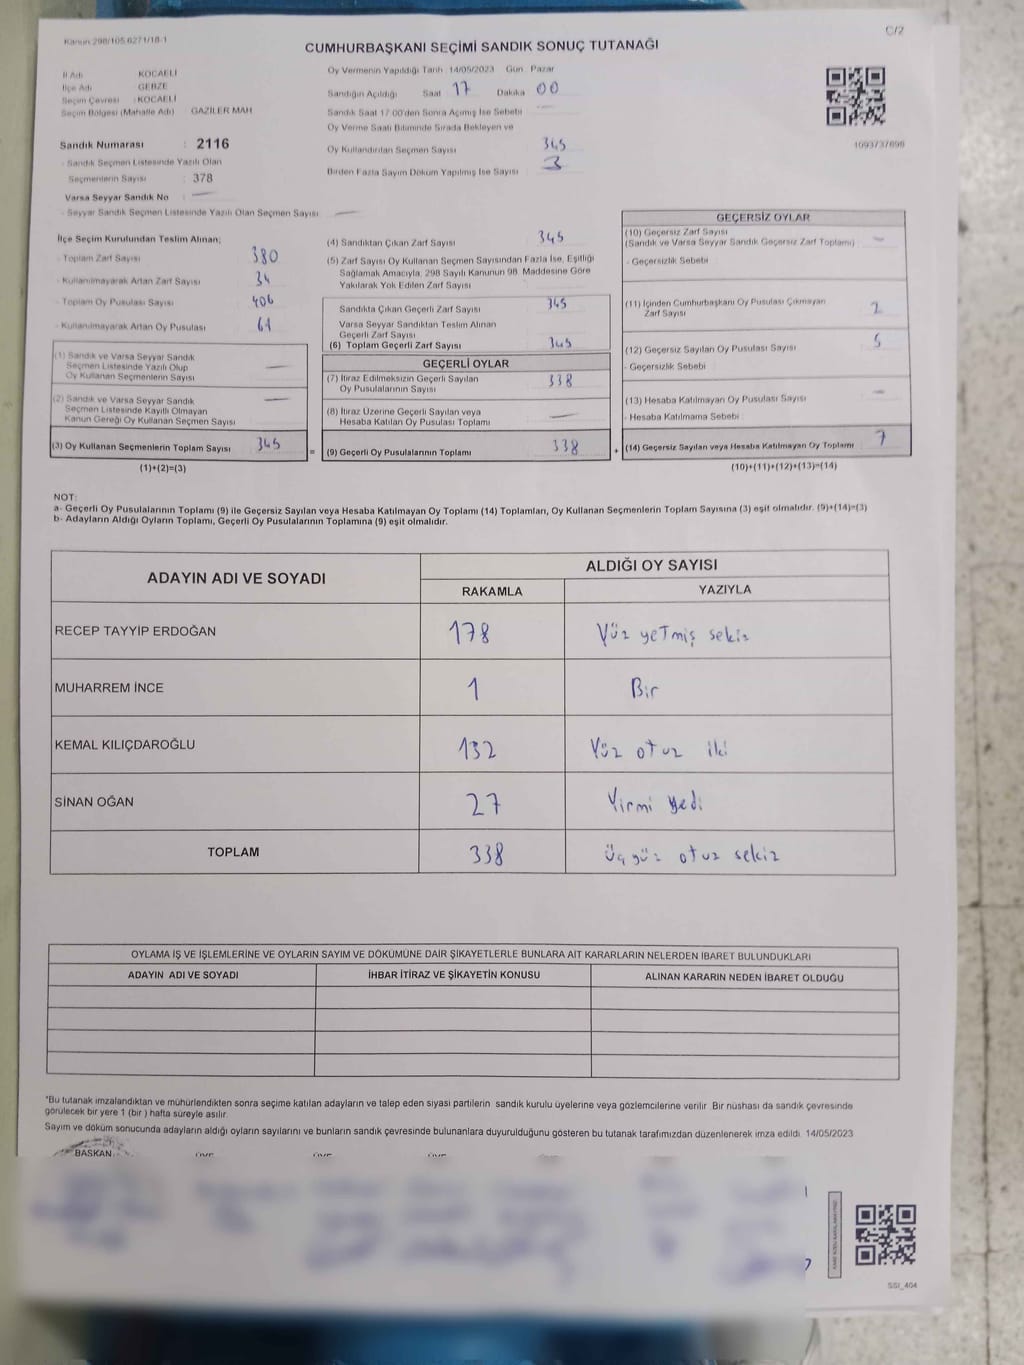 Kanun 298/105.6271/18-1
C/2
CUMHURBAŞKANI SEÇİMİ SANDIK SONUÇ TUTANAĞI
İl Adı KOCAELİ
İlçe Adı GEBZE
Seçim Çevresi : KOCAELİ
Seçim Bölgesi (Mahalle Adı) GAZİLER MAH
Sandık Numarası : 2116
- Sandık Seçmen Listesinde Yazılı Olan
Seçmenlerin Sayısı : 378
Varsa Seyyar Sandık No : —
- Seyyar Sandık Seçmen Listesinde Yazılı Olan Seçmen Sayısı —
Oy Vermenin Yapıldığı Tarih 14/05/2023 Gün Pazar
Sandığın Açıldığı Saat 17 Dakika 00
Sandık Saat 17:00'den Sonra Açılmış İse Sebebi —
Oy Verme Saati Bitiminde Sırada Bekleyen ve
Oy Kullandırılan Seçmen Sayısı 345
Birden Fazla Sayım Döküm Yapılmış İse Sayısı 3
1093737696
İlçe Seçim Kurulundan Teslim Alınan;
- Toplam Zarf Sayısı 380
- Kullanılmayarak Artan Zarf Sayısı 34
- Toplam Oy Pusulası Sayısı 406
- Kullanılmayarak Artan Oy Pusulası 61
(1) Sandık ve Varsa Seyyar Sandık
Seçmen Listesinde Yazılı Olup
Oy Kullanan Seçmenlerin Sayısı —
(2) Sandık ve Varsa Seyyar Sandık
Seçmen Listesinde Kayıtlı Olmayan
Kanun Gereği Oy Kullanan Seçmen Sayısı —
(3) Oy Kullanan Seçmenlerin Toplam Sayısı 345
(1)+(2)=(3)
(4) Sandıktan Çıkan Zarf Sayısı 345
(5) Zarf Sayısı Oy Kullanan Seçmen Sayısından Fazla İse, Eşitliği
Sağlamak Amacıyla, 298 Sayılı Kanunun 98. Maddesine Göre
Yakılarak Yok Edilen Zarf Sayısı
Sandıkta Çıkan Geçerli Zarf Sayısı 345
Varsa Seyyar Sandıktan Teslim Alınan
Geçerli Zarf Sayısı
(6) Toplam Geçerli Zarf Sayısı 345
GEÇERLİ OYLAR
(7) İtiraz Edilmeksizin Geçerli Sayılan
Oy Pusulalarının Sayısı 338
(8) İtiraz Üzerine Geçerli Sayılan veya
Hesaba Katılan Oy Pusulası Toplamı —
= (9) Geçerli Oy Pusulalarının Toplamı 338
GEÇERSİZ OYLAR
(10) Geçersiz Zarf Sayısı
(Sandık ve Varsa Seyyar Sandık Geçersiz Zarf Toplamı) —
- Geçersizlik Sebebi
(11) İçinden Cumhurbaşkanı Oy Pusulası Çıkmayan
Zarf Sayısı 2
(12) Geçersiz Sayılan Oy Pusulası Sayısı 5
- Geçersizlik Sebebi
(13) Hesaba Katılmayan Oy Pusulası Sayısı —
- Hesaba Katılmama Sebebi
+ (14) Geçersiz Sayılan veya Hesaba Katılmayan Oy Toplamı 7
(10)+(11)+(12)+(13)=(14)
NOT:
a- Geçerli Oy Pusulalarının Toplamı (9) ile Geçersiz Sayılan veya Hesaba Katılmayan Oy Toplamı (14) Toplamları, Oy Kullanan Seçmenlerin Toplam Sayısına (3) eşit olmalıdır. (9)+(14)=(3)
b- Adayların Aldığı Oyların Toplamı, Geçerli Oy Pusulalarının Toplamına (9) eşit olmalıdır.
ADAYIN ADI VE SOYADI
ALDIĞI OY SAYISI
RAKAMLA YAZIYLA
RECEP TAYYİP ERDOĞAN 178 Yüz yetmiş sekiz
MUHARREM İNCE 1 Bir
KEMAL KILIÇDAROĞLU 132 Yüz otuz iki
SİNAN OĞAN 27 Yirmi yedi
TOPLAM 338 Üç yüz otuz sekiz
OYLAMA İŞ VE İŞLEMLERİNE VE OYLARIN SAYIM VE DÖKÜMÜNE DAİR ŞİKAYETLERLE BUNLARA AİT KARARLARIN NELERDEN İBARET BULUNDUKLARI
ADAYIN ADI VE SOYADI İHBAR İTİRAZ VE ŞİKAYETİN KONUSU ALINAN KARARIN NEDEN İBARET OLDUĞU
*Bu tutanak imzalandıktan ve mühürlendikten sonra seçime katılan adayların ve talep eden siyasi partilerin sandık kurulu üyelerine veya gözlemcilerine verilir. Bir nüshası da sandık çevresinde
görülecek bir yere 1 (bir) hafta süreyle asılır.
Sayım ve döküm sonucunda adayların aldığı oyların sayılarını ve bunların sandık çevresinde bulunanlara duyurulduğunu gösteren bu tutanak tarafımızdan düzenlenerek imza edildi. 14/05/2023
BAŞKAN
SSI_404